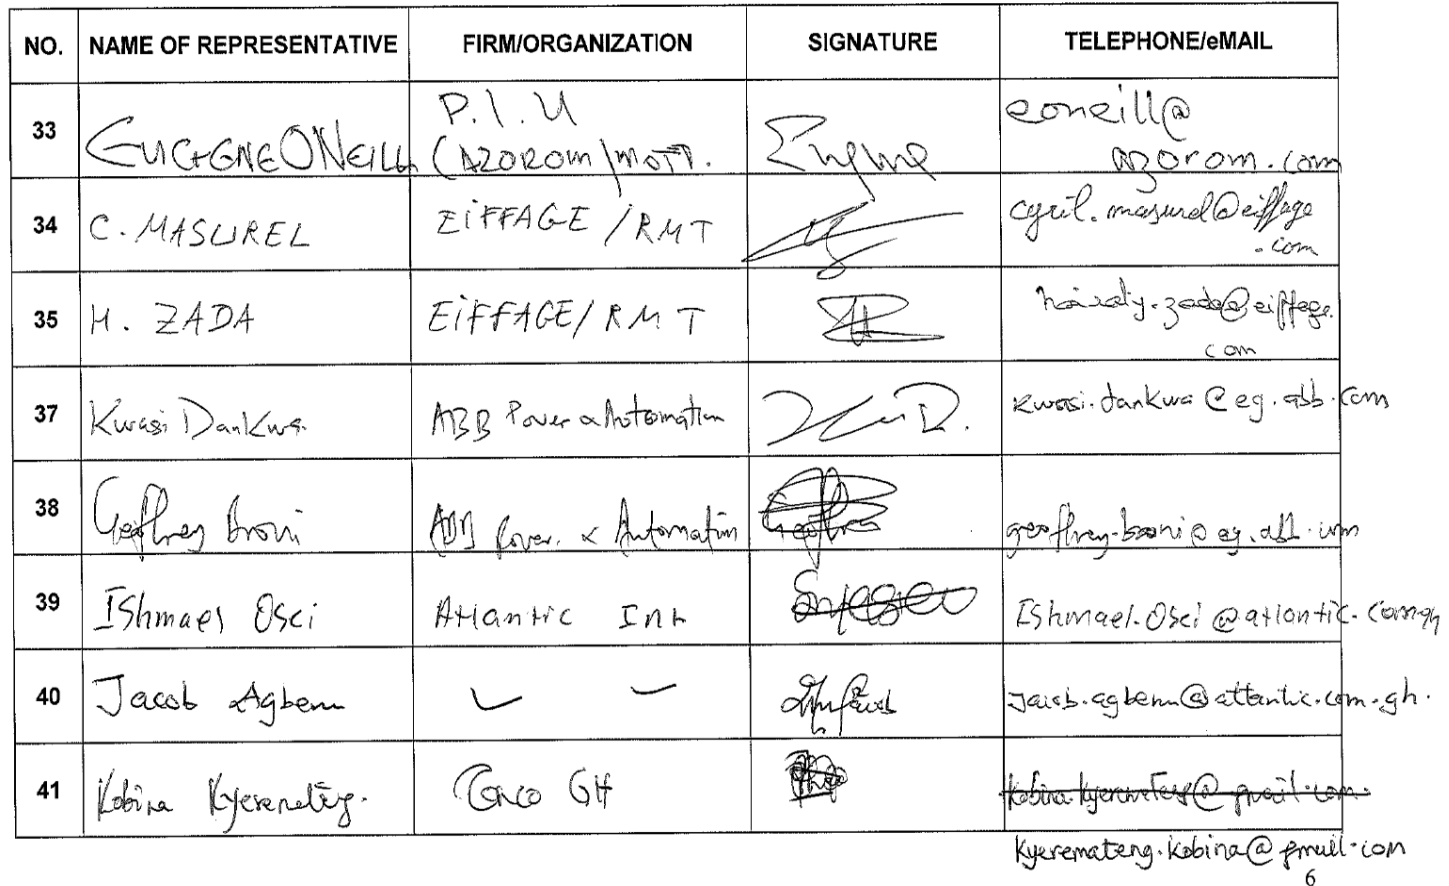 NO. NAME OF REPRESENTATIVE FIRM/ORGANIZATION SIGNATURE TELEPHONE/eMAIL
33 EUGENE ONEILL P.I.U (AZOROM/MOTT. Eugene eoneill@azorom.com
34 C. MASUREL EIFFAGE/RMT cyril.masurel@eiffage.com
35 H. ZADA EIFFAGE/RMT zada@eiffage.com
37 Kwasi Dankwa ABB Power & Automation kwasi.dankwa@eg.abb.com
38 Geoffrey Broni ABB Power & Automation Geoffrey geoffrey.broni@eg.abb.com
39 Ishmael Osei Atlantic Int Ishmael.Osei@atlantic.com.gh
40 Jacob Agbenu Jacob.agbenu@atlantic.com.gh.
41 Kobina Kyeremateng. Conco GH kobina.kyeremateng@gmail.com.
kyeremateng.kobina@gmail.com
6